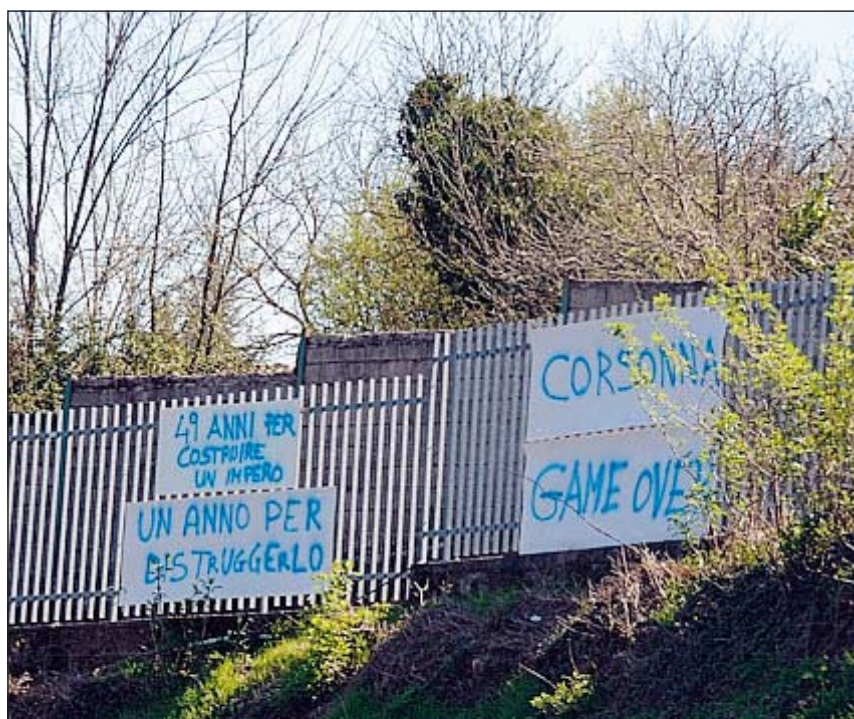 49 ANNI PER
COSTRUIRE
UN IMPERO
UN ANNO PER
DISTRUGGERLO
CORSONNA
GAME OVER